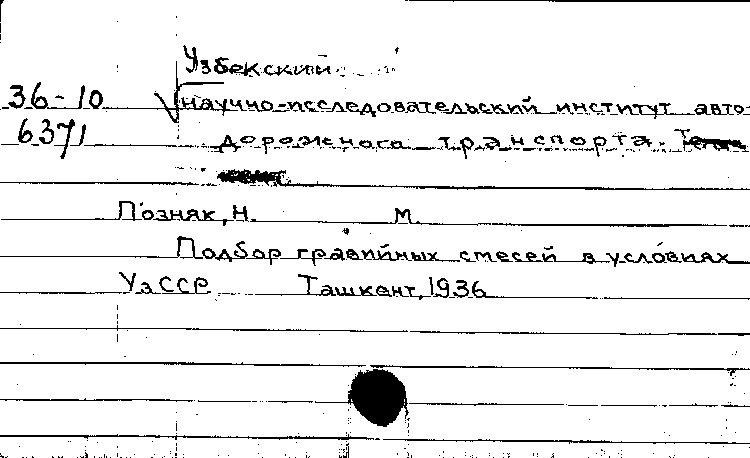 Узбекский
36-10 научно-исследовательский институт авто-
6371 дорожного транспорта.
Позняк, Н. М.
Подбор гравийных смесей в условиях
УзССР Ташкент, 1936